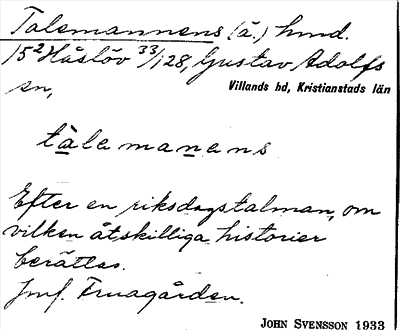 Talemannens (ä.) hmd.
15² Håslöv 33/128, Gustav Adolfs
sn,
Villands hd, Kristianstads län
tàlemanens
Efter en riksdagstalman, om
vilken åtskilliga historier
berättas.
Jmf. Fruagården.
JOHN SVENSSON 1933